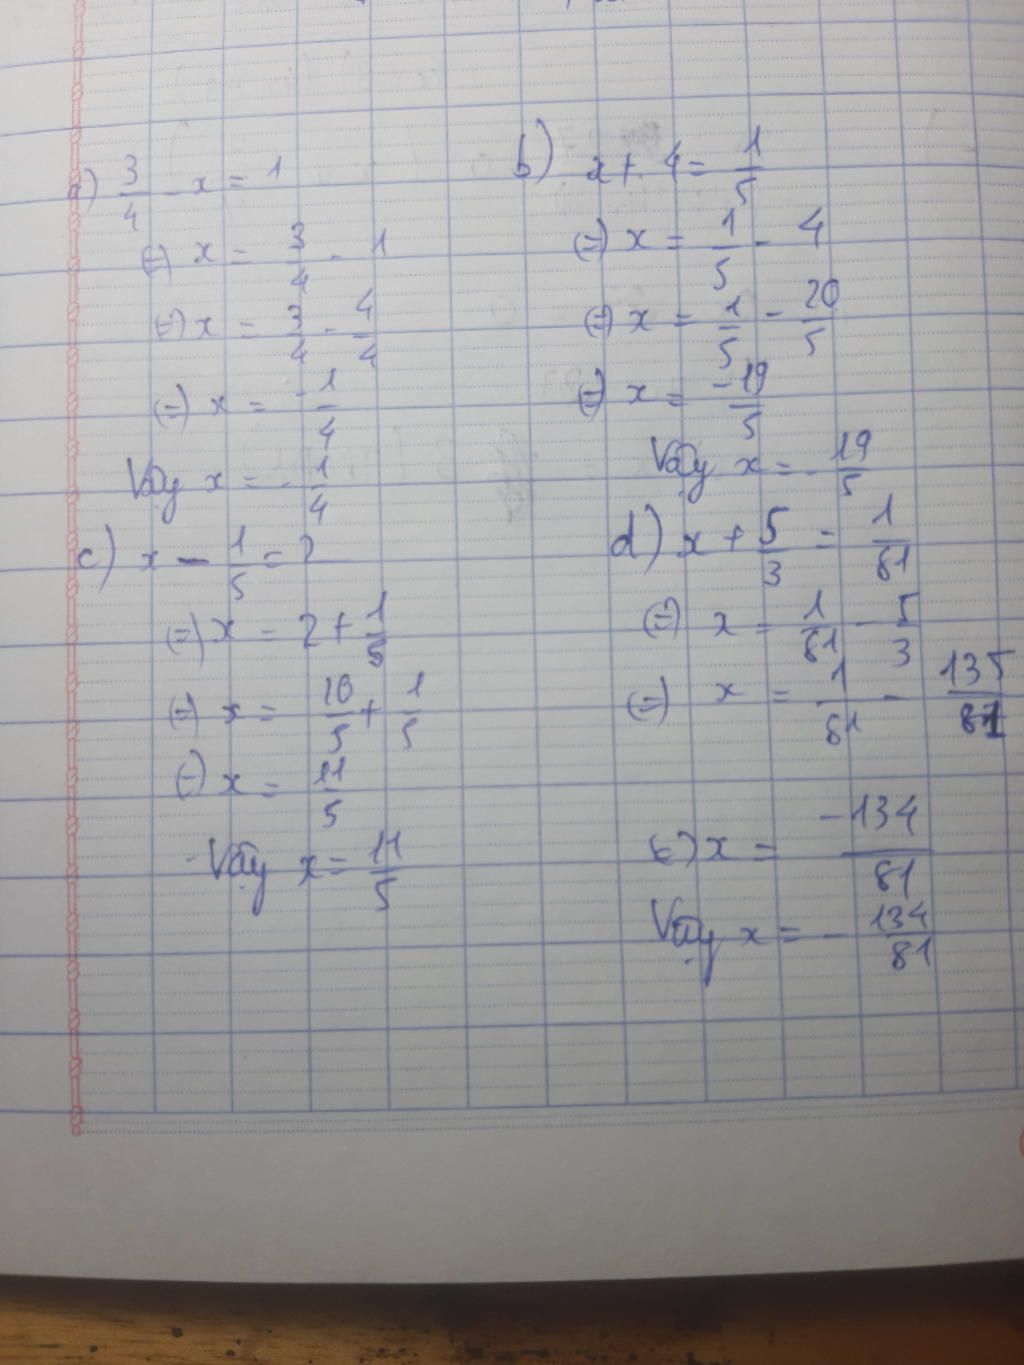 a) 3/4 - x = 1
(=) x = 3/4 - 1
(=) x = 3/4 - 4/4
(=) x = -1/4
Vậy x = -1/4
b) x + 4 = 1/5
(=) x = 1/5 - 4
(=) x = 1/5 - 20/5
(=) x = -19/5
Vậy x = -19/5
c) x - 1/5 = 2
(=) x = 2 + 1/5
(=) x = 10/5 + 1/5
(=) x = 11/5
Vậy x = 11/5
d) x + 5/3 = 1/81
(=) x = 1/81 - 5/3
(=) x = 1/81 - 135/81
(=) x = -134/81
Vậy x = -134/81